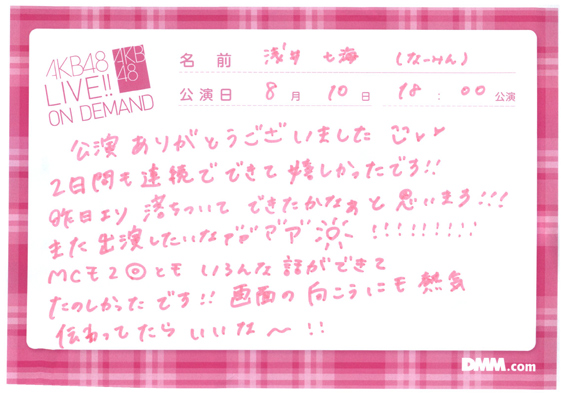 AKB48
LIVE!!
ON DEMAND
AKB
48
名 前 浅井 七海 (なーみん)
公演日 8 月 10 日 18 : 00 公演
公演 ありがとうございました
2日間も連続でできて嬉しかったです!!
昨日より 落ちついて できたかなぁと思います!!!
また出演したいな !!!!!!!!!
MCも2◎とも いろんな話ができて
たのしかったです!! 画面の向こうにも熱気
伝わってたらいいな〜 !!
DMM.com